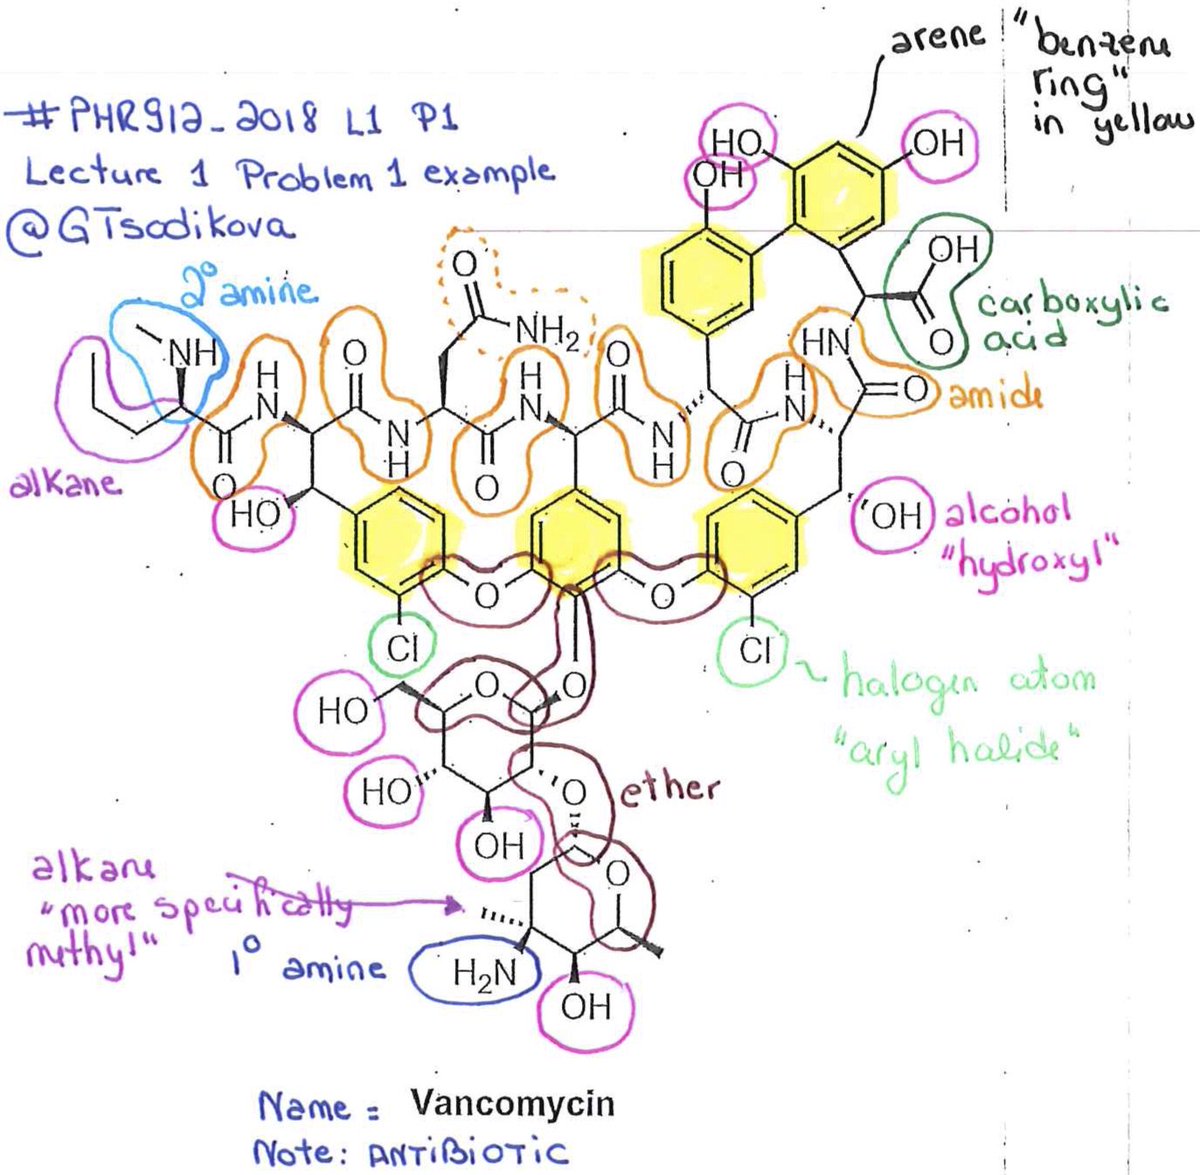 arene | "benzene
ring"
in yellow
#PHR912_2018 L1 P1
Lecture 1 Problem 1 example
@GTsodikova
HO
OH
OH
OH
O
carboxylic
acid
2° amine
NH
O
NH2
O
O
HN
O
amide
H
N
H
N
H
N
O
N
H
O
N
H
O
O
alkane
HO
OH
alcohol
"hydroxyl"
O
O
Cl
Cl
halogen atom
"aryl halide"
O
O
HO
HO
O
ether
OH
O
alkane
"more specifically
methyl"
1° amine
H2N
OH
Name = Vancomycin
Note: ANTiBiOTiC